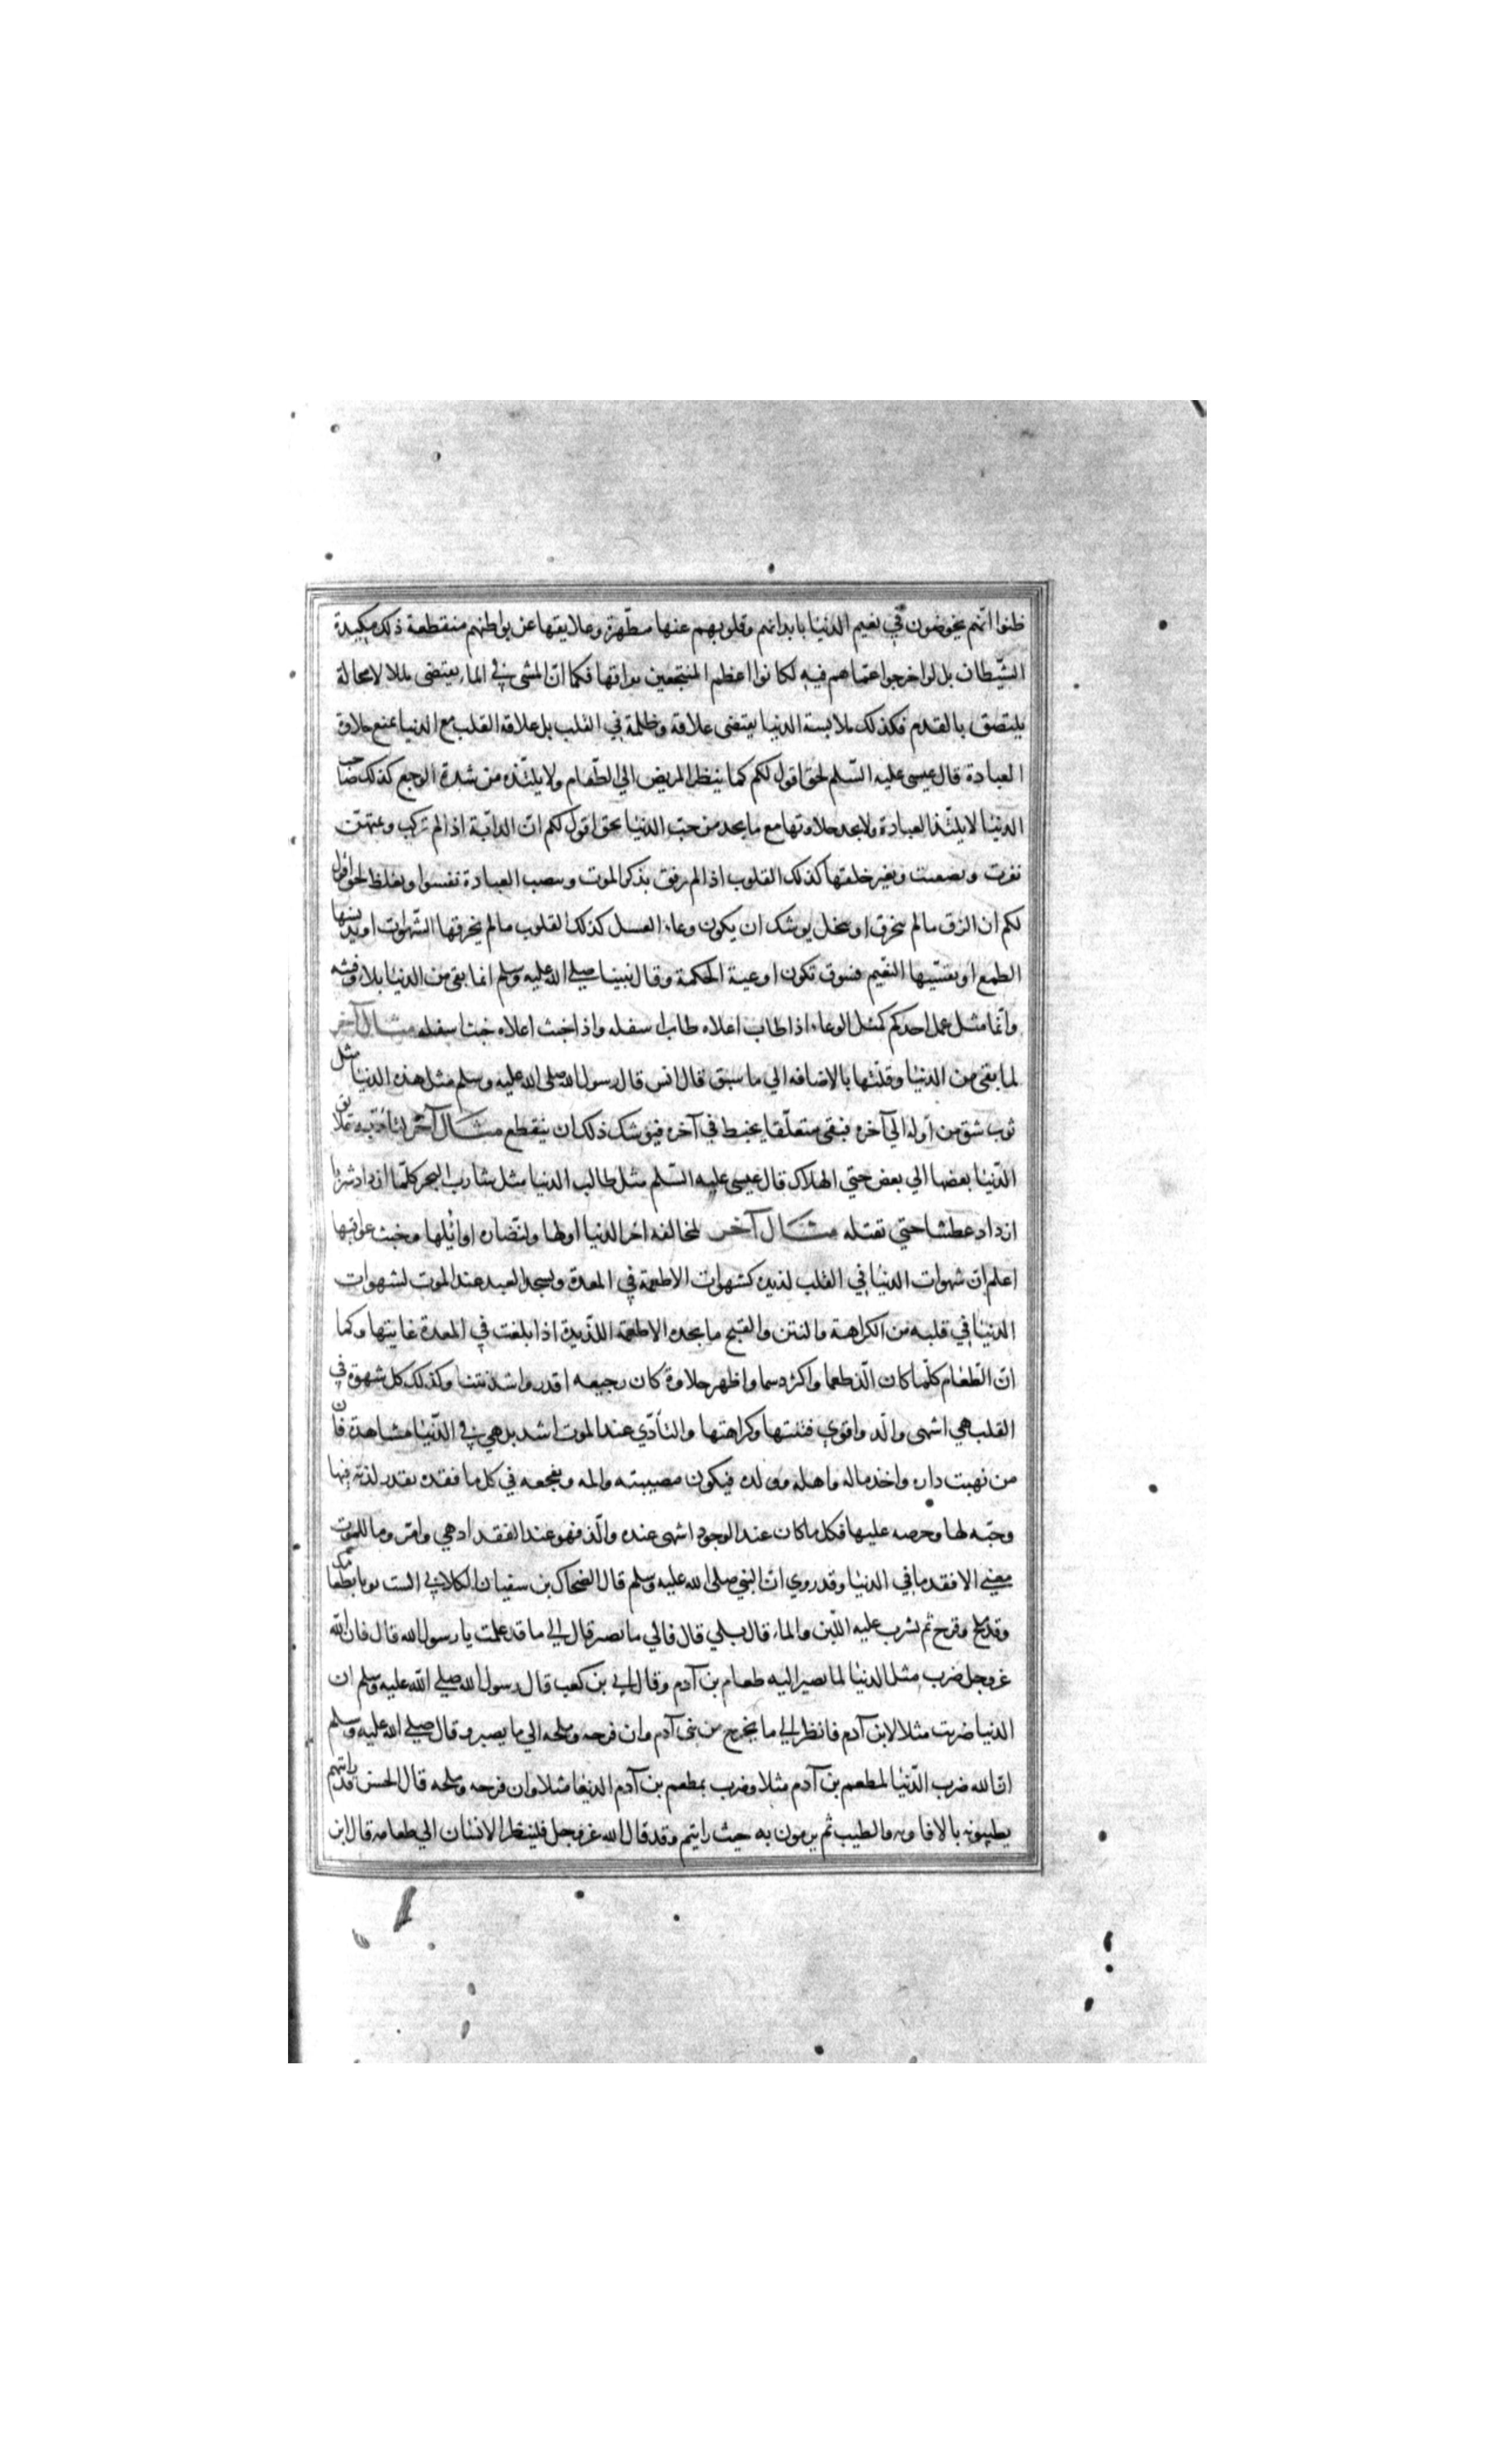 ظنوا انهم يخوضون في نعيم الدنيا بابدانهم وقلوبهم عنها مطهرة وعلايقها عن بواطنهم منقطعة ذلك مكيدة
الشيطان بل لو اخرجوا عما هم فيه لكانوا اعظم المتفجعين بفراقها فكما ان المشي في الماء يقتضى بللا لا محالة
يلتصق بالقدم فكذلك ملابسة الدنيا يقتضى علاقة وظلمة في القلب بل علاقة القلب مع الدنيا يمنع حلاوة
العبادة قال عيسى عليه السلم لحق اقول لكم كما ينظر المريض الي الطعام ولا يلتذه من شدة الوجع كذلك صاحب
الدنيا لا يلتذ العبادة ولا يجد حلاوتها مع ما يجد من حب الدنيا بحق اقول لكم ان الدابة اذا لم تركب وتمتهن
نفرت وتصعبت وتغير خلقها كذلك القلوب اذا لم ترقق بذكر الموت ونصب العبادة تقسوا وتغلظ لحق اقول
لكم ان الزق ما لم ينخرق او ينحل يوشك ان يكون وعاء العسل كذلك القلوب ما لم يخرقها الشهوات او يدنسها
الطمع او يقسيها النعيم فسوف تكون اوعية الحكمة وقال نبينا صلى الله عليه وسلم انما بقى من الدنيا بلاء وفتنة
وانما مثل عمل احدكم كمثل الوعاء اذا طاب اعلاه طاب اسفله واذا خبث اعلاه خبث اسفله مثال آخر
لما بقى من الدنيا وقلتها بالاضافه الي ما سبق قال انس قال رسول الله صلى الله عليه وسلم مثل هذه الدنيا مثل
ثوب شق من اوله الي آخره فبقى متعلقا بخيط في آخره فيوشك ذلك ان ينقطع مثال آخر لتأدية علايق
الدنيا بعضها الي بعض حتي الهلاك قال عيسى عليه السلم مثل طالب الدنيا مثل شارب البحر كلما ازداد شربا
ازداد عطشا حتي تقتله مثال آخر لمخالفه اخر الدنيا اولها ولنضاره اوائلها وخبث عواقبها
اعلم ان شهوات الدنيا في القلب لذيذه كشهوات الاطعمة في المعدة وليجد العبد عند الموت لشهوات
الدنيا في قلبه من الكراهة والنتن والقبح ما يجده الاطعمة اللذيذة اذا بلغت في المعدة غايتها وكما
ان الطعام كلما كان الذ طعما واكثر دسما واظهر حلاوة كان رجيعه اقذر واشد نتنا وكذلك كل شهوة في
القلب هي اشهى والذ واقوي فنتنها وكراهتها والتأذي عند الموت اشد بل هي في الدنيا مشاهدة فان
من نهبت داره واخذ ماله واهله وولده فيكون مصيبته والمه وتفجعه في كل ما فقده بقدر لذته فيها
وحبه لها وحرصه عليها فكل ما كان عند الوجود اشهى عنده والذ فهو عند الفقد ادهي وامر وما للموت
معنى الا فقد ما في الدنيا وقد روي ان النبي صلى الله عليه وسلم قال الضحاك بن سفيان الكلابي الست توتا بطعامك
وقد ملح وقزح ثم تشرب عليه اللبن والماء قال بلي قال فالي ما تصير قال الي ما قد علمت يا رسول الله قال فان الله
عز وجل ضرب مثل الدنيا لما يصير اليه طعام بن آدم وقال ابي بن كعب قال رسول الله صلى الله عليه وسلم ان
الدنيا ضربت مثلا لابن آدم فانظر الي ما يخرج من بني آدم وان قزحه وملحه الي ما يصير وقال صلى الله عليه وسلم
ان الله ضرب الدنيا لمطعم بن آدم مثلا وضرب بمطعم بن آدم الدنيا مثلا وان قزحه وملحه قال الحسن قد رايتهم
يطيبونه بالافاويه والطيب ثم يرمون به حيث رايتم وقد قال الله عز وجل فلينظر الانسان الي طعامه قال ابن